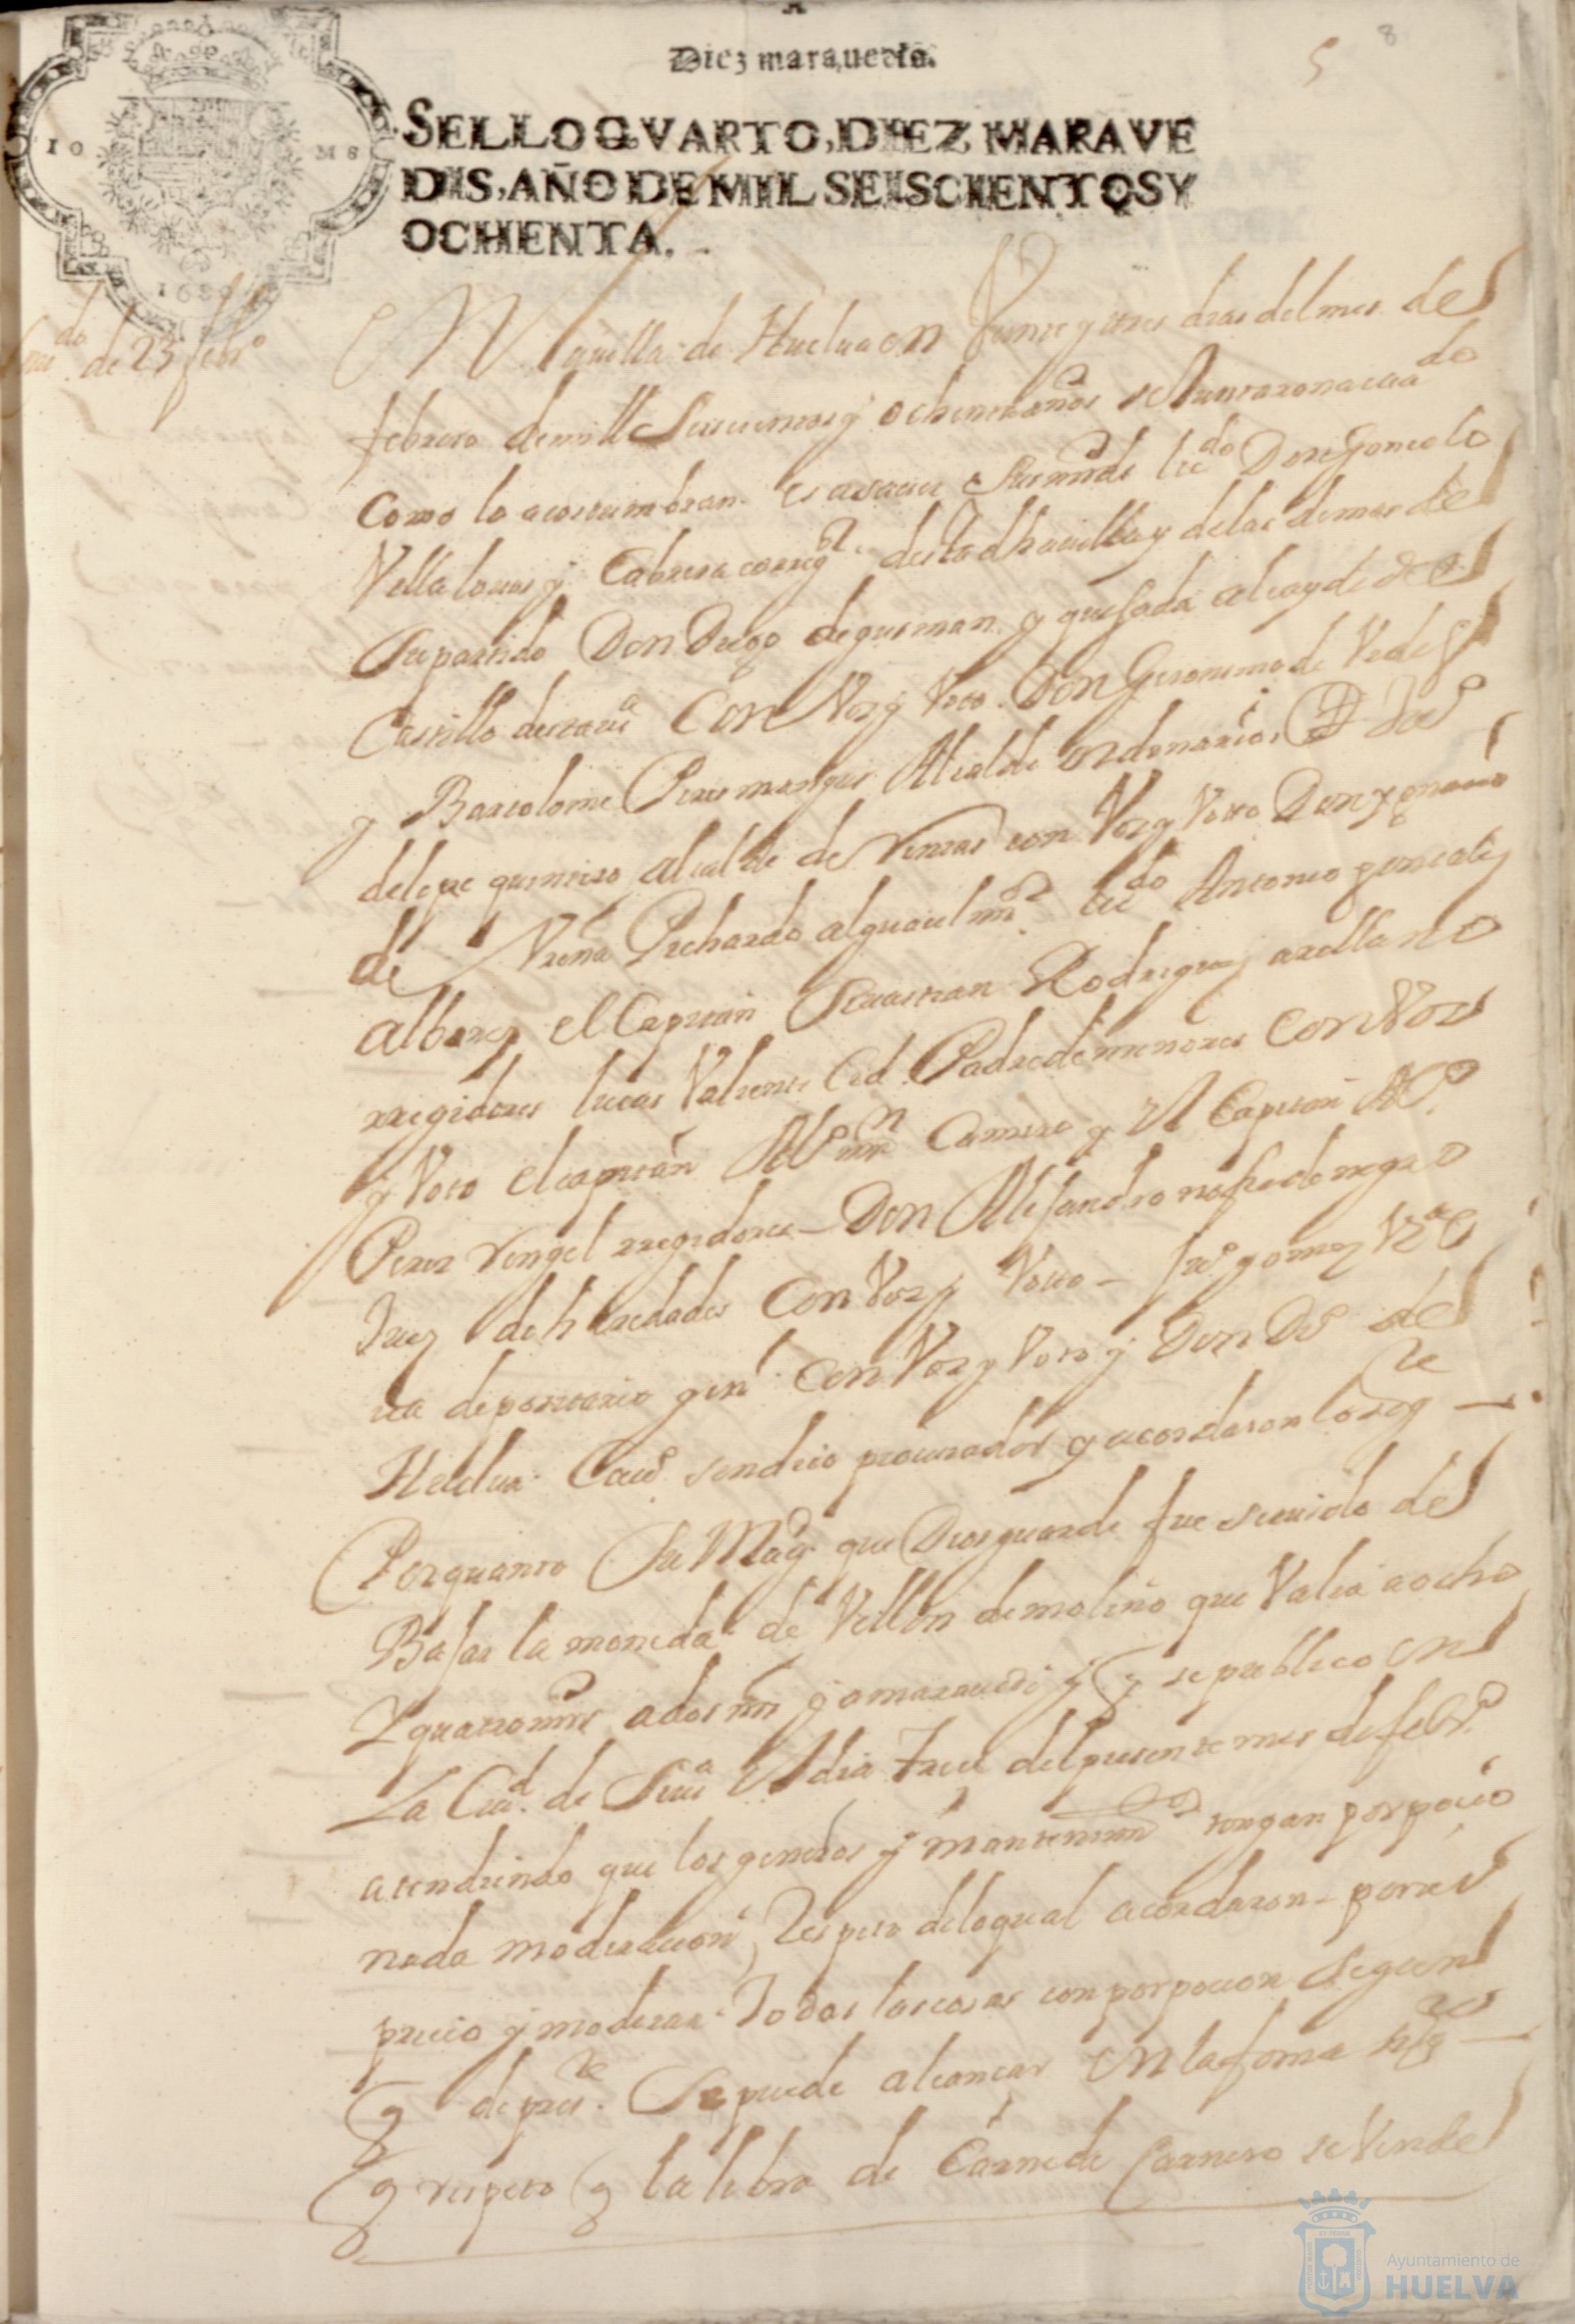 Diez maravedis.
5 8
SELLO QVARTO, DIEZ MARAVE
DIS, AÑO DE MIL SEISCIENTOS Y
OCHENTA.
10 MS
1680
de 23 febro
EN la uilla de Huelua en Veinte y tres dias del mes de
febrero de mill Seiscientos y ochenta años se Juntaron a cauildo
Como lo acostumbran es a sauer Su md el lizdo Don Gonçalo
Villalouos y Cabrera correxor desta dha uilla y de las demas de
Su partido Don Diego de gusman y quesada alcayde del
Castillo desta uia Con Voz y Voto. Don Geronimo de
y Bartolome Peres marques Alcalde ordenarios
de lepe quintero alcalde de Rentas con Voz y Voto Don ygnacio
de Vreña Pichardo alguacil mor lizdo Antonio gonçales
albares el Capitan Seuastian Rodriguez arellano
rregidores lucas Valiente Cid Padre de menores Con Voz
y Voto el capitan Alo mrn Camero y el Capitan Alo
Peres Rengel rregidores - Don Alejandro de negro
Juez de heredades Con Voz y Voto - fro gomez
depositario genl Con Voz y Voto y Don Do de
Huelua Cauo sendico procurador y acordaron lo sigte
Por quanto Su Magd que Dios guarde fue seruido de
Bajar la moneda de Vellon de molino que Valia a ocho
y quatro mrs a dos mrs y a marauedi y se publico en
La Ciud de Seua el dia trece del presente mes de febro
atendiendo que los generos y mantenimtos tengan porpocio
nada moderacion, Respeto de lo qual acordaron - poner
precio y moderar todas las cosas con porpocion Segun
q de preste Se puede alcançar en la forma sigte
q respeto q la libra de Carne de Carnero se Vende
Ayuntamiento de
HUELVA